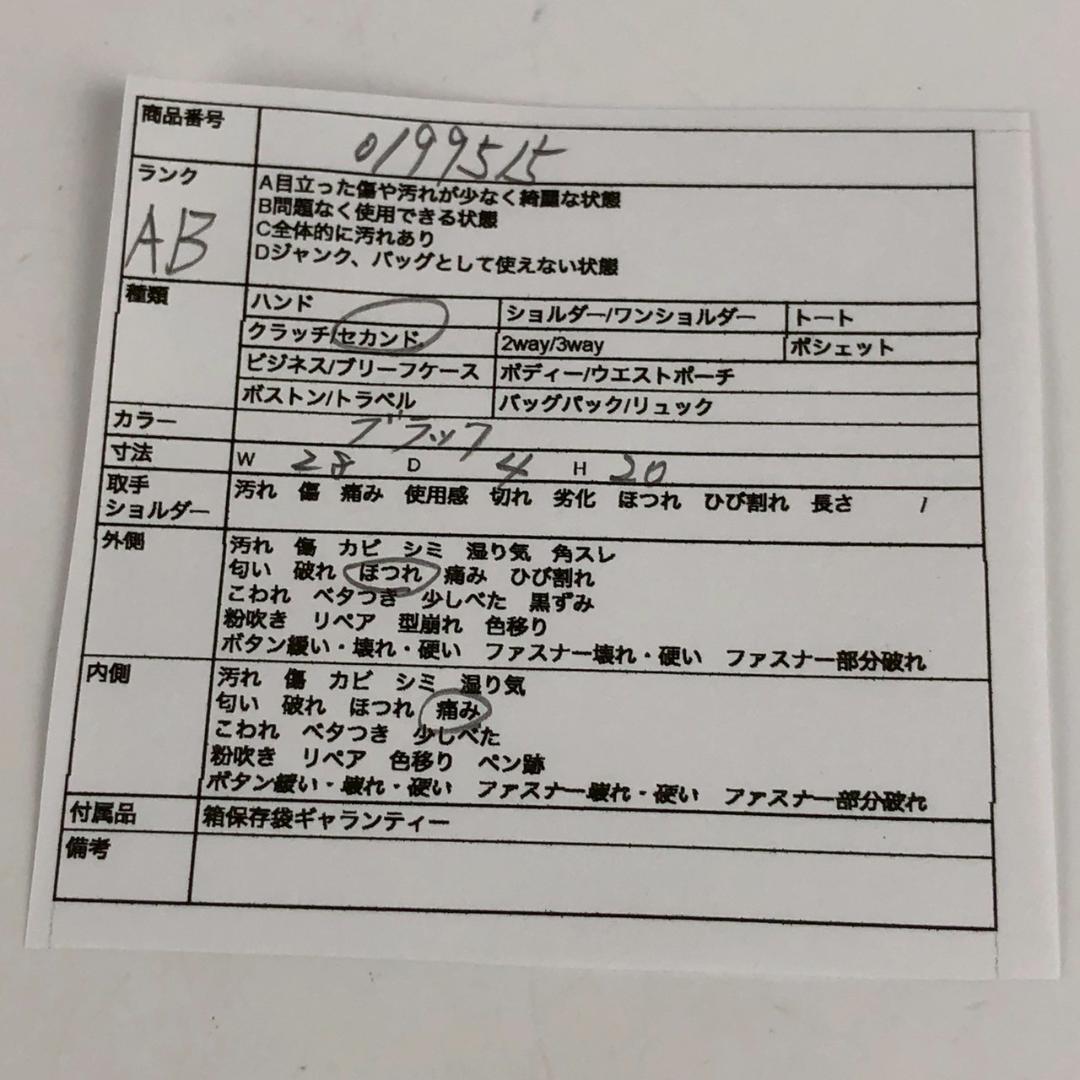 商品番号
0199515
ランク
AB
A目立った傷や汚れが少なく綺麗な状態
B問題なく使用できる状態
C全体的に汚れあり
Dジャンク、バッグとして使えない状態
種類
ハンド ショルダー/ワンショルダー トート
クラッチ/セカンド 2way/3way ポシェット
ビジネス/ブリーフケース ボディー/ウエストポーチ
ボストン/トラベル バッグパック/リュック
カラー ブラック
寸法 W D 4 H 20
取手
ショルダー
汚れ 傷 痛み 使用感 切れ 劣化 ほつれ ひび割れ 長さ /
外側
汚れ 傷 カビ シミ 湿り気 角スレ
匂い 破れ ほつれ 痛み ひび割れ
こわれ ベタつき 少しべた 黒ずみ
粉吹き リペア 型崩れ 色移り
ボタン緩い・壊れ・硬い ファスナー壊れ・硬い ファスナー部分破れ
内側
汚れ 傷 カビ シミ 湿り気
匂い 破れ ほつれ 痛み
こわれ ベタつき 少しべた
粉吹き リペア 色移り ペン跡
ボタン緩い・壊れ・硬い ファスナー壊れ・硬い ファスナー部分破れ
付属品 箱保存袋ギャランティー
備考